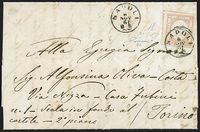 NAPOLI
NAPOLI
Alla Gregia Signora
Sig. Alfonsina Oliva-Cortesi
Via Nizza - Casa
n. 1 - Scala in fondo al
cortile - 2° piano Torino